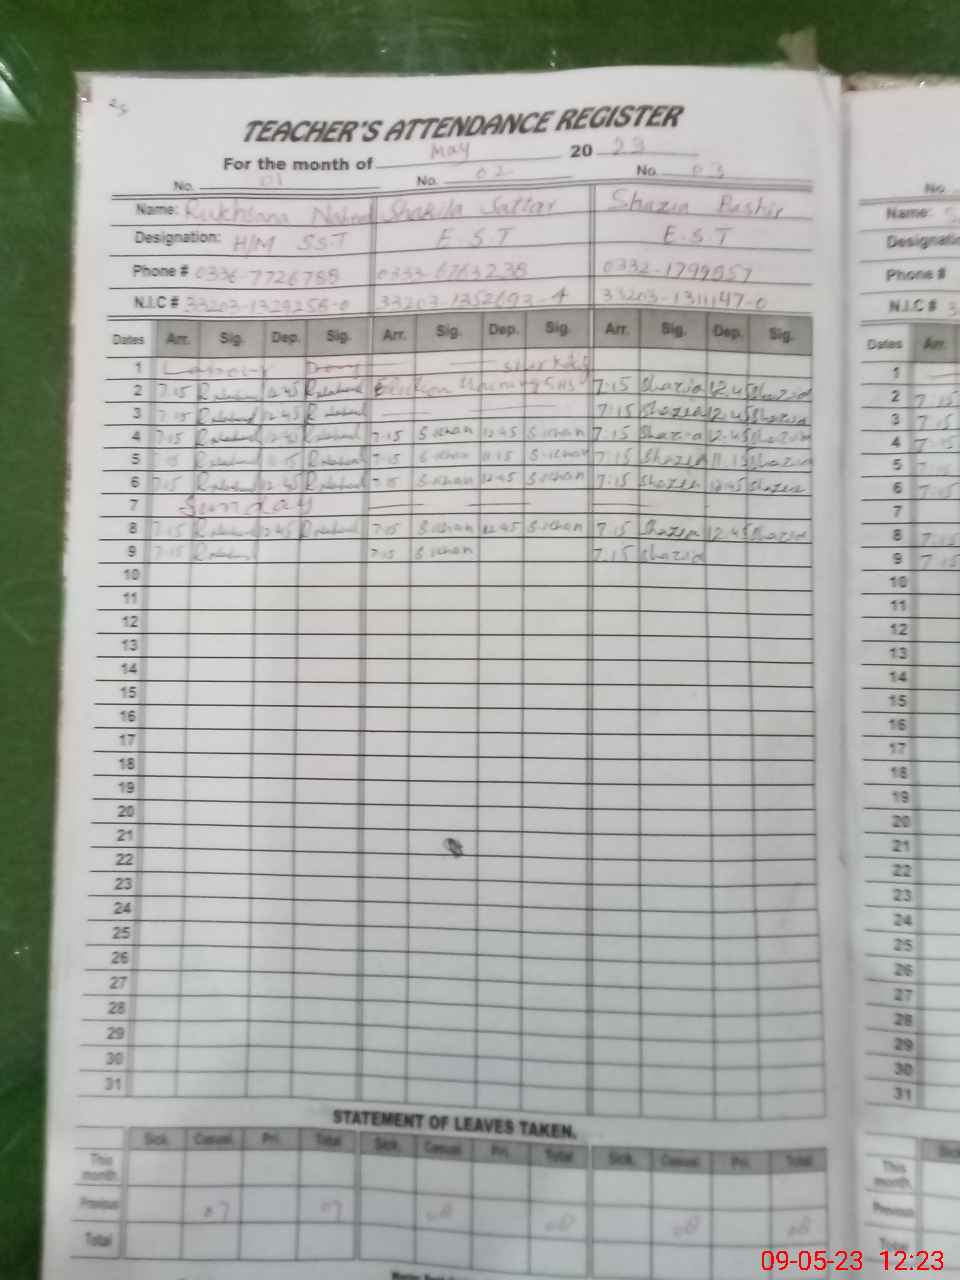 25
TEACHER'S ATTENDANCE REGISTER
For the month of May 2023
No. 01 No. 02 No. 03 No.
Name: Rukhsana Shakila Sattar Shazia Bashir Name:
Designation: H/M S.S.T E.S.T E.S.T
Phone # 0336-7726788 0333-6763238 0332-1799957 Phone #
N.I.C # 33203-1329258-0 33203-1352693-4 33203-1311147-0 N.I.C # 3
Dates Arr. Sig. Dep. Sig. Arr. Sig. Dep. Sig. Arr. Sig. Dep. Sig. Dates Arr.
1 Labour Day 1
2 7:15 12.45 7:15 Shazia 12.45 Shazia 2 7:15
3 7:15 12.45 7:15 Shazia 12.45 Shazia 3 7:15
4 7:15 12.45 7:15 S.Khan 12.45 S.Khan 7:15 Shazia 12.45 Shazia 4 7:15
5 7:15 S.Khan 11.15 S.Khan 7:15 Shazia 11.15 Shazia 5 7:15
6 7:15 12.45 7:15 S.Khan 12.45 S.Khan 7:15 Shazia 12.45 Shazia 6 7:15
7 Sunday 7
8 7:15 12.45 7:15 S.Khan 12.45 S.Khan 7.15 Shazia 12.45 Shazia 8 7:15
9 7:15 7:15 S.Khan 7.15 Shazia 9 7:15
10 10
11 11
12 12
13 13
14 14
15 15
16 16
17 17
18 18
19 19
20 20
21 21
22 22
23 23
24 24
25 25
26 26
27 27
28 28
29 29
30 30
31 31
STATEMENT OF LEAVES TAKEN.
Sick. Casual. Pri. Total Sick. Casual. Pri. Total Sick. Casual. Pri. Total
This month. This month.
Previous 07 07 08 08 08 08 Previous
Total Total
09-05-23 12:23